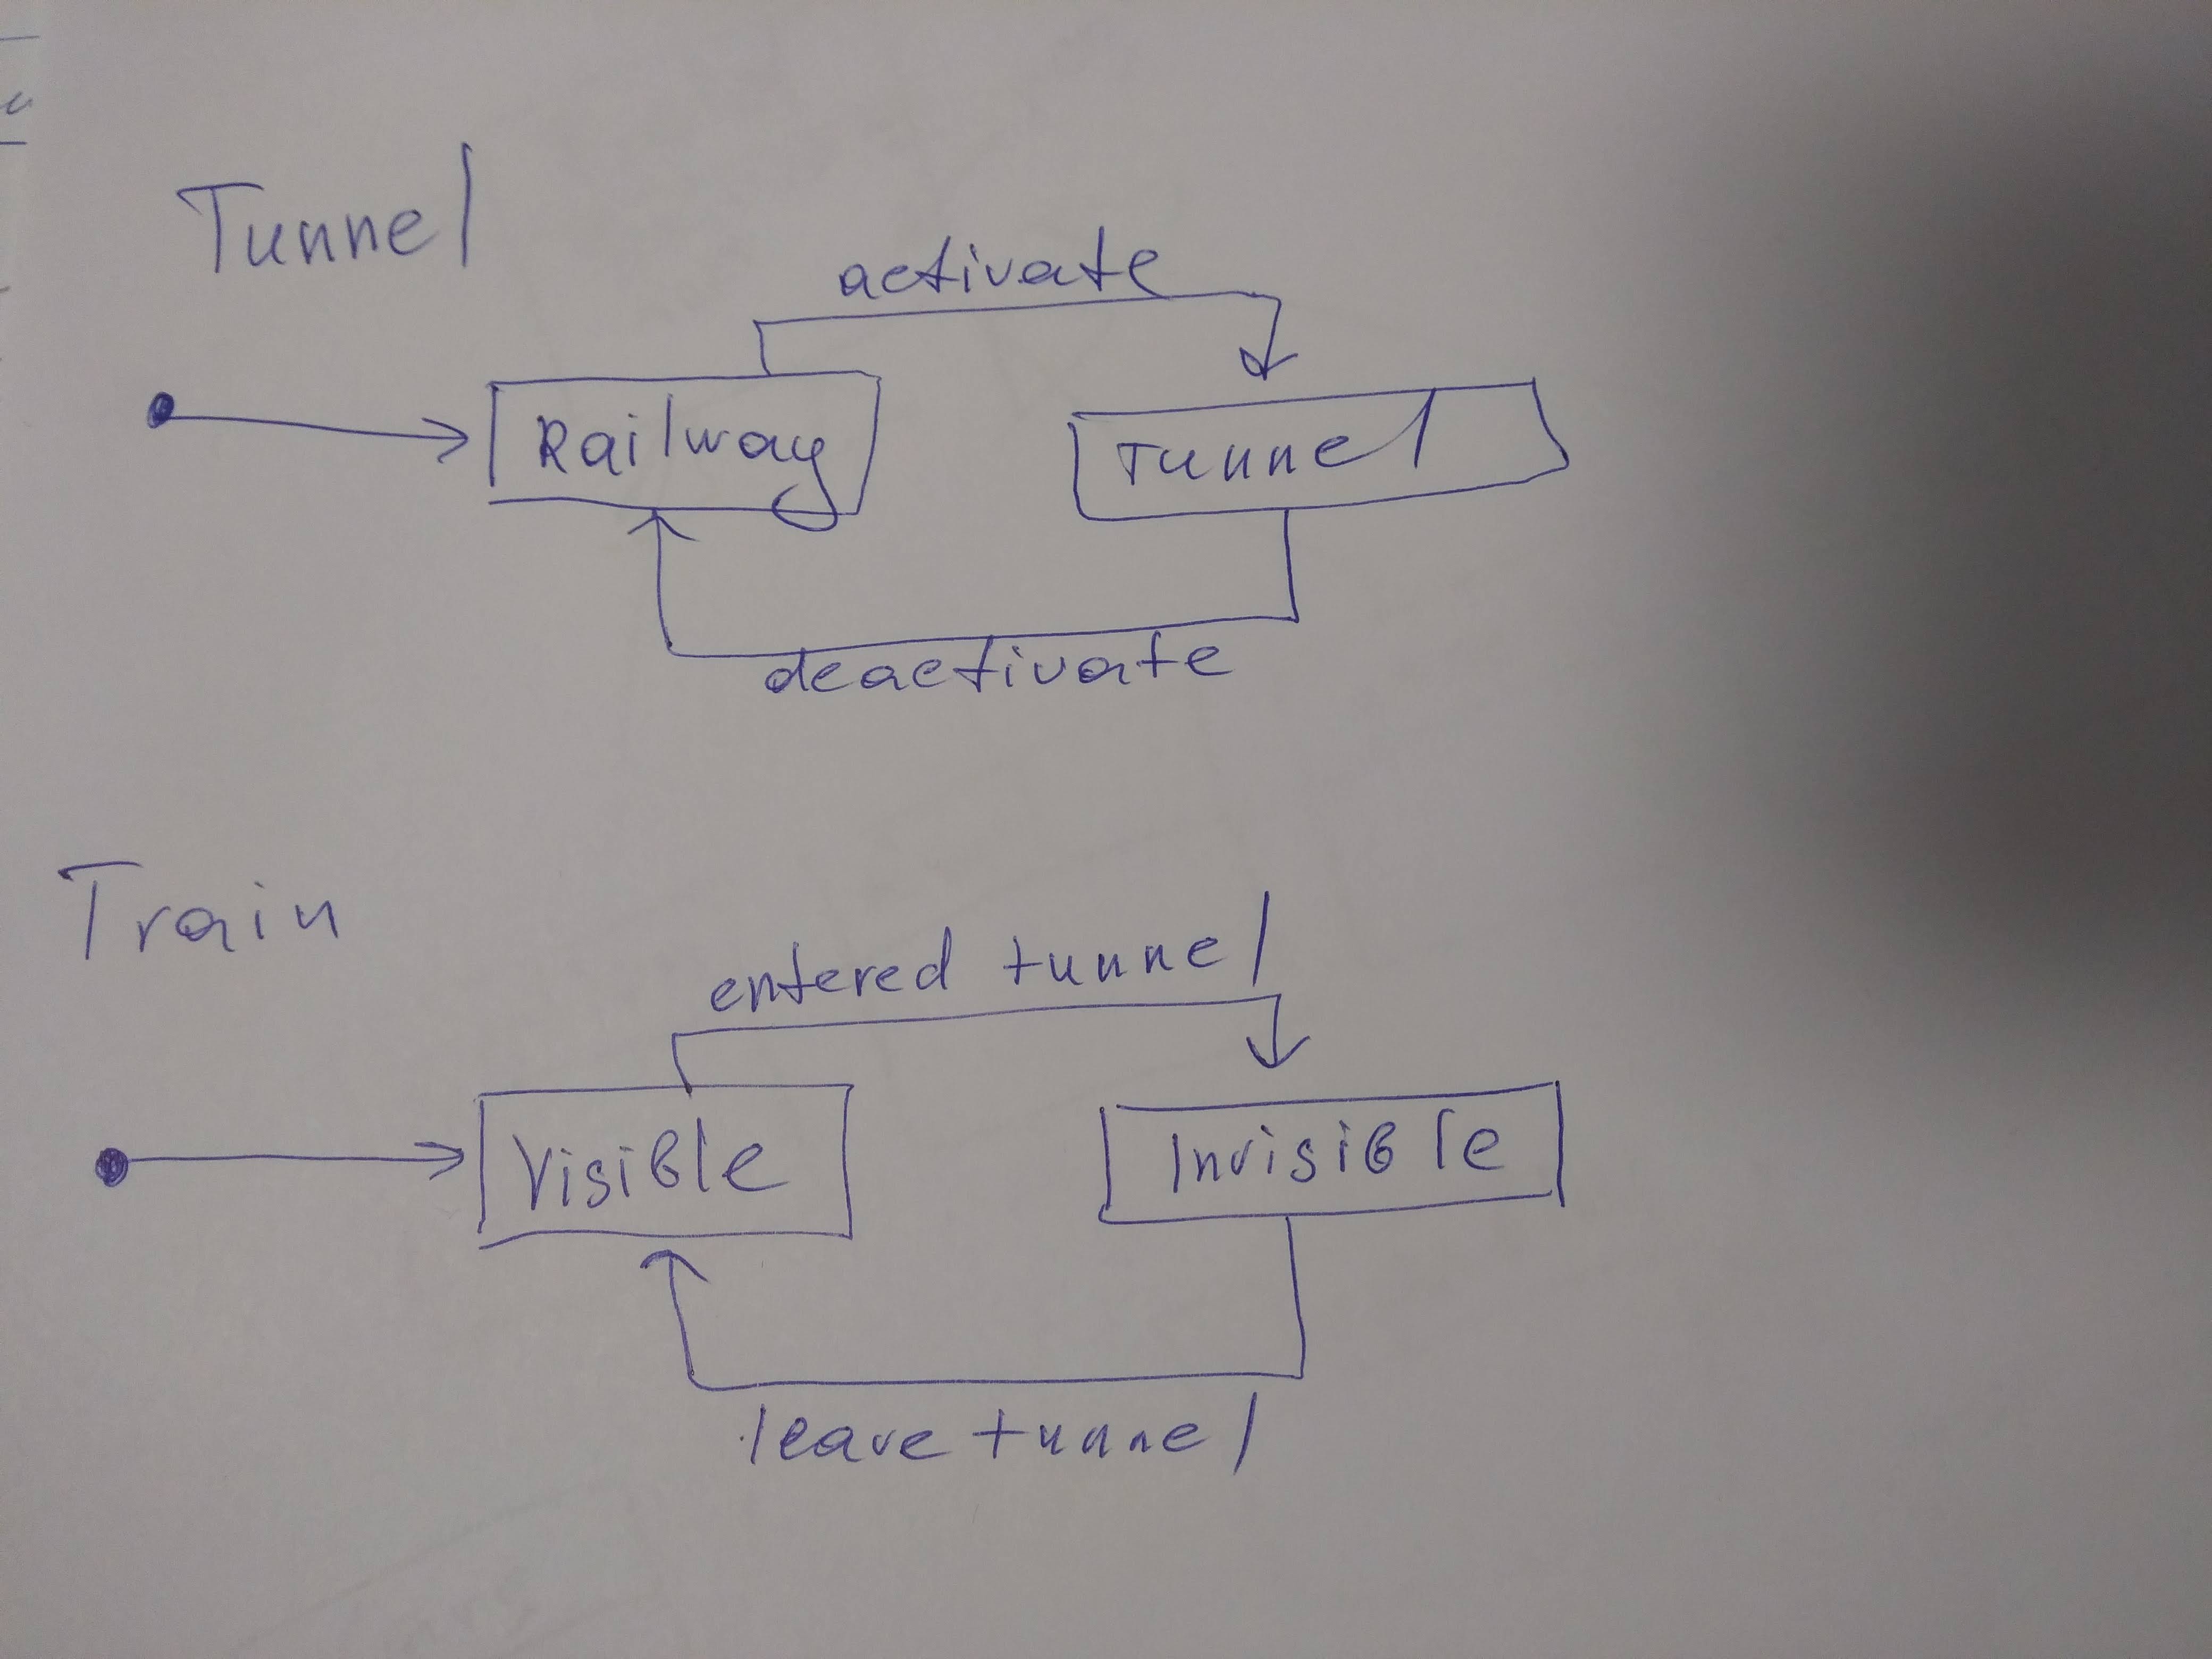 Tunnel
activate
Railway
Tunnel
deactivate
Train
entered tunnel
Visible
Invisible
leave tunnel